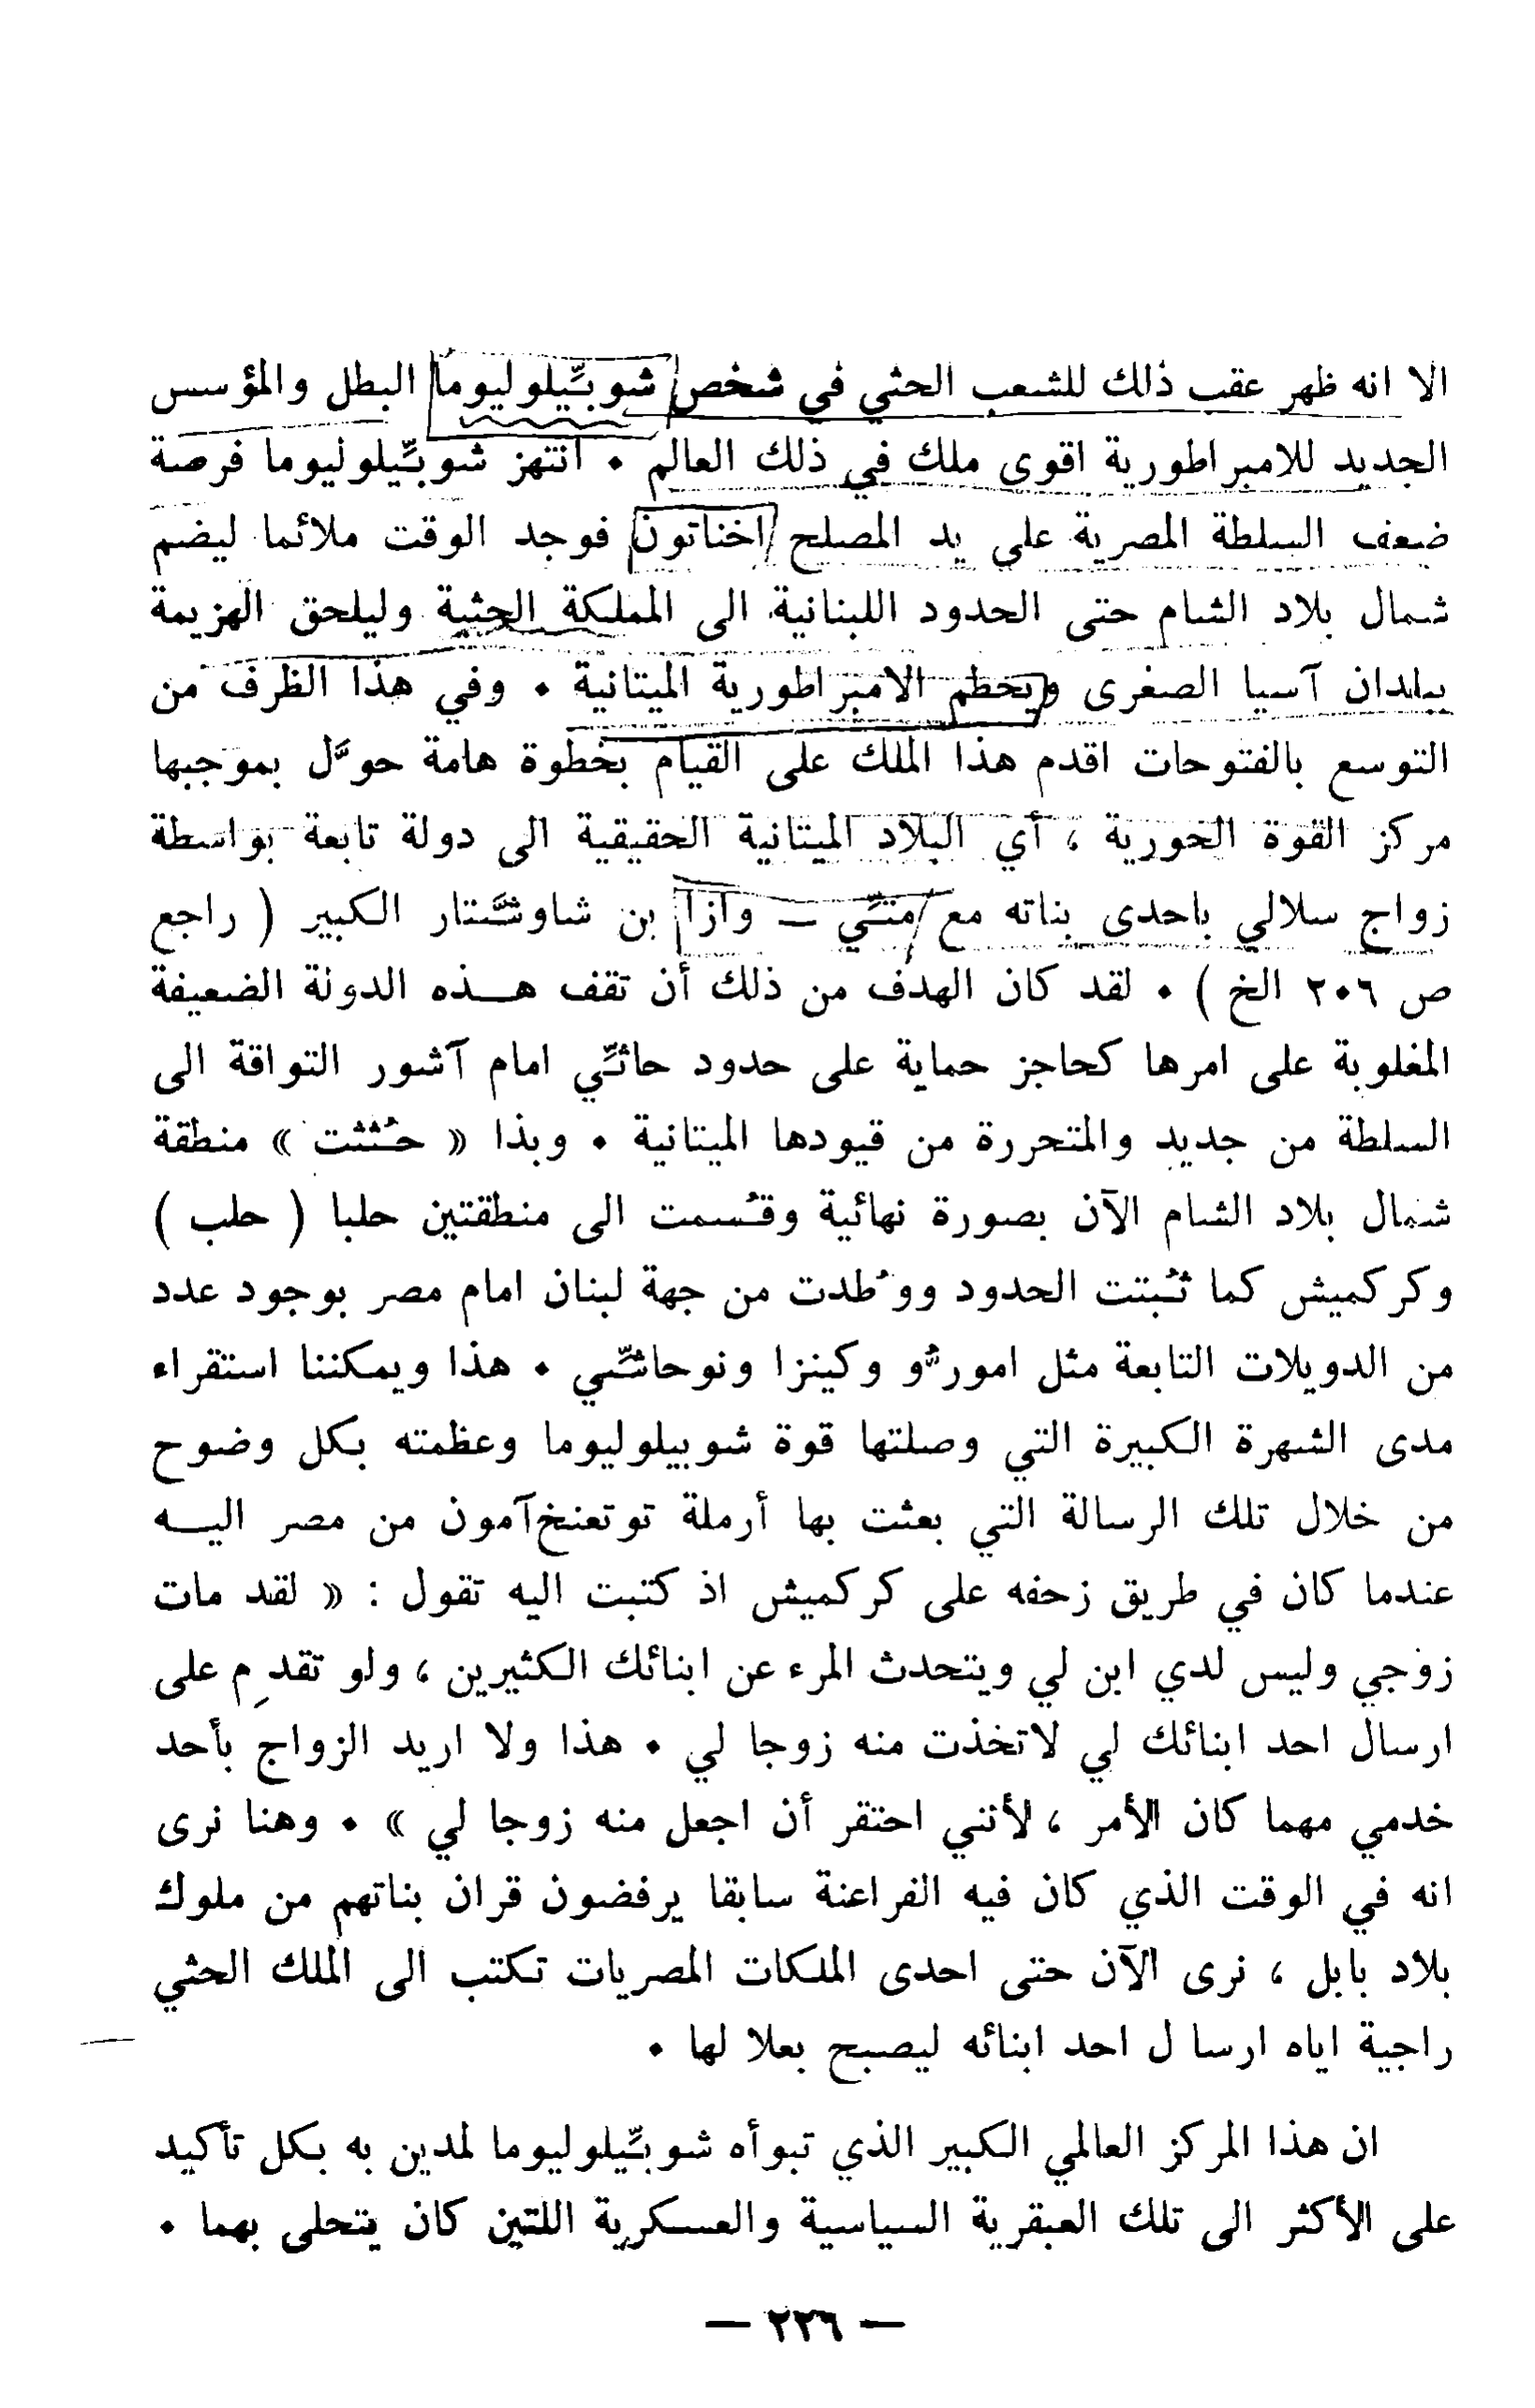 الا انه ظهر عقب ذلك للشعب الحثي في شخص شوبّيلوليوما البطل والمؤسس
الجديد للامبراطورية اقوى ملك في ذلك العالم • انتهز شوبّيلوليوما فرصة
ضعف السلطة المصرية على يد المصلح اخناتون فوجد الوقت ملائما ليضم
شمال بلاد الشام حتى الحدود اللبنانية الى المملكة الحثية وليلحق الهزيمة
ببلدان آسيا الصغرى ويحطم الامبراطورية الميتانية • وفي هذا الظرف من
التوسع بالفتوحات اقدم هذا الملك على القيام بخطوة هامة حوَّل بموجبها
مركز القوة الحورية ، أي البلاد الميتانية الحقيقية الى دولة تابعة بواسطة
زواج سلالي باحدى بناته مع متِّي — وازا بن شاوشَّتار الكبير ( راجع
ص ٢٠٦ الخ ) • لقد كان الهدف من ذلك أن تقف هـذه الدولة الضعيفة
المغلوبة على امرها كحاجز حماية على حدود حاثِّي امام آشور التواقة الى
السلطة من جديد والمتحررة من قيودها الميتانية • وبذا « حُثثت » منطقة
شمال بلاد الشام الآن بصورة نهائية وقُسمت الى منطقتين حلبا ( حلب )
وكركميش كما ثُبتت الحدود ووُطدت من جهة لبنان امام مصر بوجود عدد
من الدويلات التابعة مثل امورُّو وكينزا ونوحاشِّي • هذا ويمكننا استقراء
مدى الشهرة الكبيرة التي وصلتها قوة شوبيلوليوما وعظمته بكل وضوح
من خلال تلك الرسالة التي بعثت بها أرملة توتعنخ‌آمون من مصر اليـه
عندما كان في طريق زحفه على كركميش اذ كتبت اليه تقول : « لقد مات
زوجي وليس لدي ابن لي ويتحدث المرء عن ابنائك الكثيرين ، ولو تقدِم على
ارسال احد ابنائك لي لاتخذت منه زوجا لي • هذا ولا اريد الزواج بأحد
خدمي مهما كان الأمر ، لأنني احتقر أن اجعل منه زوجا لي » • وهنا نرى
انه في الوقت الذي كان فيه الفراعنة سابقا يرفضون قران بناتهم من ملوك
بلاد بابل ، نرى الآن حتى احدى الملكات المصريات تكتب الى الملك الحثي
راجية اياه ارسال احد ابنائه ليصبح بعلا لها •
ان هذا المركز العالمي الكبير الذي تبوأه شوبّيلوليوما لمدين به بكل تأكيد
على الأكثر الى تلك العبقرية السياسية والعسكرية اللتين كان يتحلى بهما •
— ٢٢٦ —